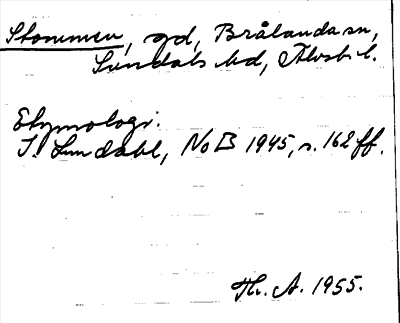 Stommen, gd, Brålanda sn,
Sundals hd, Älvsb. l.
Etymologi.
I. Lundahl, NoB 1945, s. 162 ff.
Th. A. 1955.